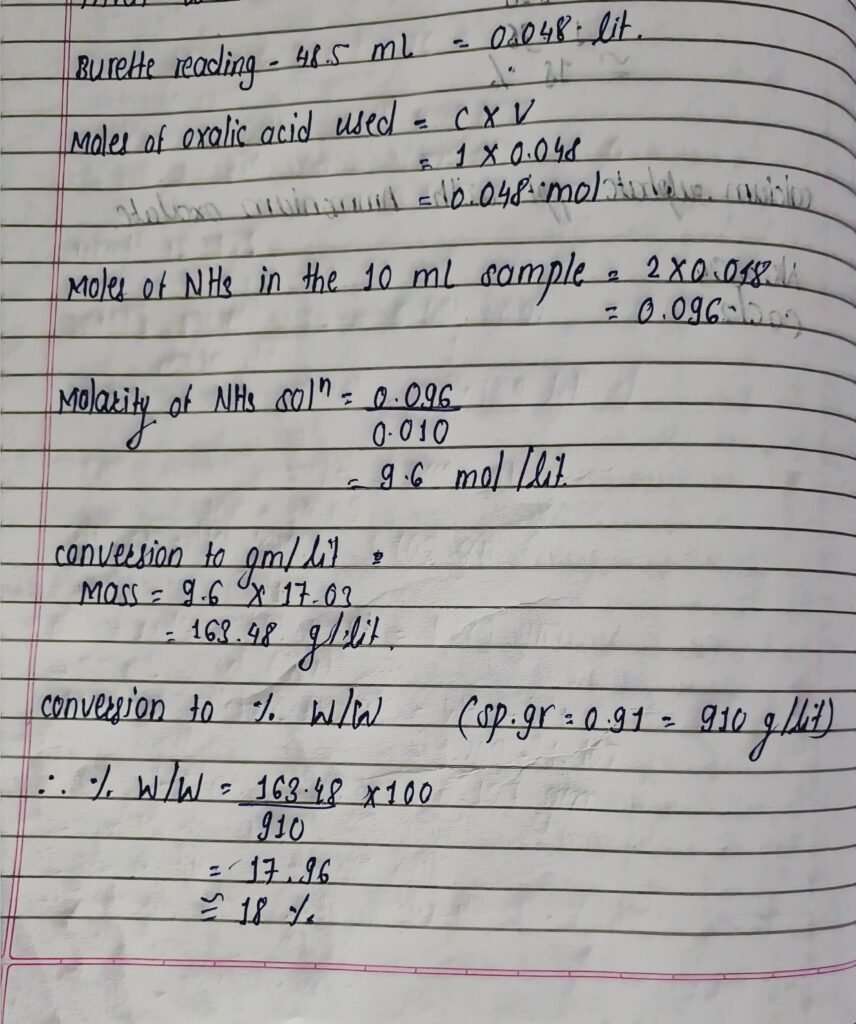 Burette reading - 48.5 ml = 0.048 lit.
Moles of oxalic acid used = C X V
= 1 X 0.048
= 0.048 mol
Moles of NH3 in the 10 ml sample = 2 X 0.048
= 0.096
Molarity of NH3 solⁿ = 0.096
0.010
= 9.6 mol / lit.
conversion to gm/ lit
Mass = 9.6 X 17.03
= 163.48 g/lit.
conversion to % W/W (sp.gr = 0.91 = 910 g/lit)
∴ % W/W = 163.48 X 100
910
= 17.96
≅ 18 %